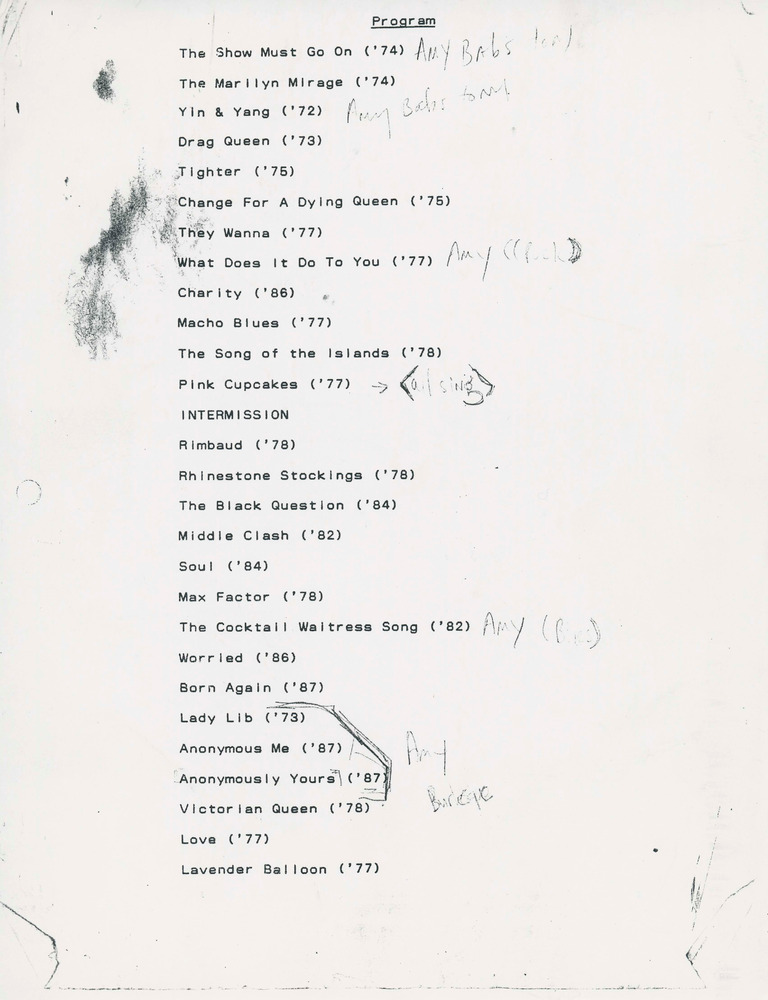 Program
The Show Must Go On ('74) Amy Babs
The Marilyn Mirage ('74)
Yin & Yang ('72) Amy Babs
Drag Queen ('73)
Tighter ('75)
Change For A Dying Queen ('75)
They Wanna ('77)
What Does It Do To You ('77) Amy
Charity ('86)
Macho Blues ('77)
The Song of the Islands ('78)
Pink Cupcakes ('77) → <all sing>
INTERMISSION
Rimbaud ('78)
Rhinestone Stockings ('78)
The Black Question ('84)
Middle Clash ('82)
Soul ('84)
Max Factor ('78)
The Cocktail Waitress Song ('82) Amy
Worried ('86)
Born Again ('87)
Lady Lib ('73)
Anonymous Me ('87) Amy
Anonymously Yours ('87)
Victorian Queen ('78)
Love ('77)
Lavender Balloon ('77)